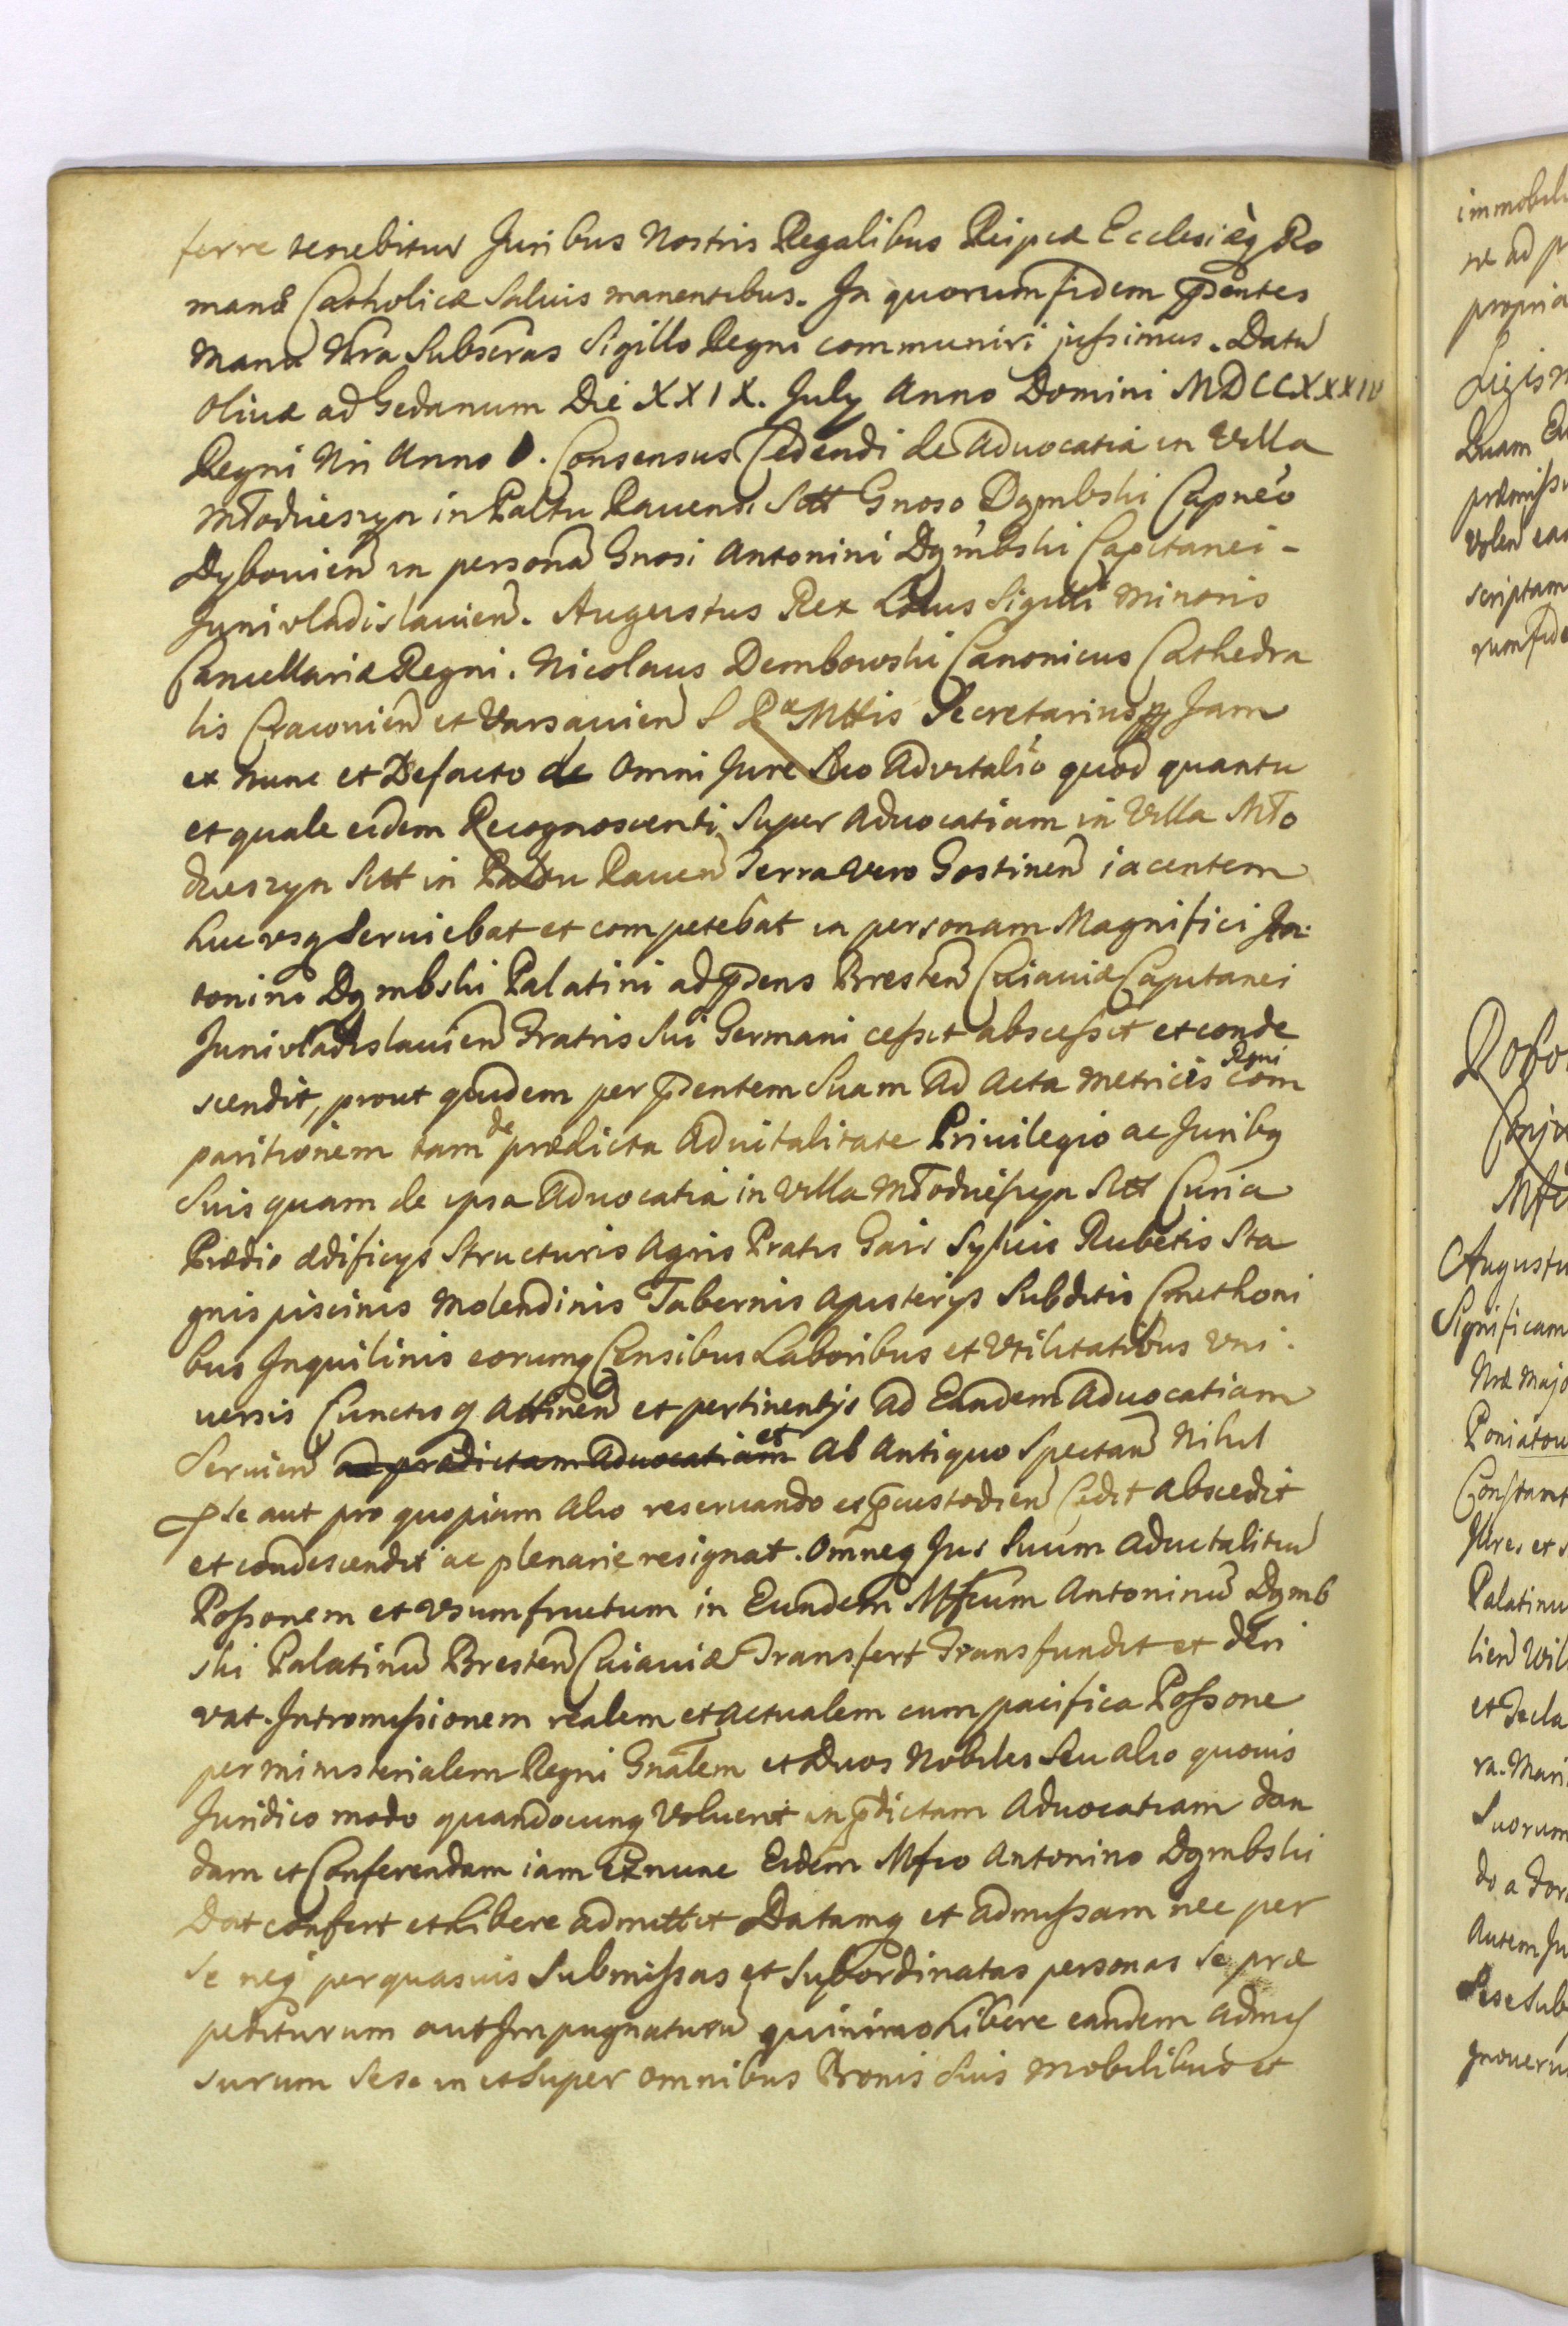 ferre tenebitur Juribus Nostris Regalibus Reipcæ Ecclesiæq Ro
manæ Catholicæ Salvis manentibus. In quorum fidem pñdentes
Manu Nra Subscras Sigillo Regni communiri jussimus. Datũ
Olivæ ad Gedanum Die XXIX. July Anno Domini MDCCXXXIV
Regni Nri Anno I. Consensus Cedendi de Advocatia in Villa
Młodzieszyn in Palttu Raven. Sitt Gnoso Dąmbski Capneo
Dyboviеñ in persona Gnosi Antonini Dąmbski Capitanei -
Junivladislavieñ. Augustus Rex Locus Sigilli Minoris
Cancellariæ Regni. Nicolaus Dembowski Canonicus Cathedra
lis Cracovieñ et Varsavieñ S R Mttis Secretarius pp Jam
ex nunc et Defacto de omni Jure Suo Advitalio quod quantũ
et quale eidem Recognoscenti super Advocatiam in Villa Mło
dzieszyn Sitt in Palttu Raveñ Terra vero Gostineñ iacentem
hucvsq Serviebat et competebat in personam Magnifici An
tonini Dąmbski Palatini ad pñdens Bresteñ Cuiaviæ Capitanei
Junivladislavieñ Fratris Sui Germani cessit abscessit et conde
scendit, prout quidem per pñdentem Suam ad Acta Metrices Rgni com
paritionem tam de prædicta Advitalitate Privilegio ac Juribq
Suis quam de ipsa Advocatia in Villa Młodzieszyn Sitt Curia
Prædio ædificys Structuris Agris Pratis Gais Sylvis Rubetis Sta
gnis piscinis Molendinis Tabernis Apisterys Subditis Cmethoni
bus Inquilinis eorumq Censibus Laboribus et Vtilitatibus Vni
versis Cunctis q Attineñ et pertinentys ad Eandem Advocatiam
Servieñ ad prædictam Advocatiam et Ab Antiquo Spectañ Nihil
p Se aut pro quopiam Alio reservando et pcustodieñ Cedit abscedit
et condescendit ac plenarie resignat. Omneq Jus Suum Advitalitiũ
Possonem et Vsumfructum in Eundem Mfcum Antoninũ Dąmb
ski Palatinũ Bresteñ Cuiaviæ Transfert Transfundit et deri
vat. Intromissionem realem et actualem cum pacifica Possone
per ministerialem Regni Gnalem et Duos Nobiles Seu alio quovis
Juridico modo quandocunq Voluerit in pdictam Advocatiam dan
dam et Conferendam iam ex nunc Eidem Mfco Antonino Dąmbski
Dat confert et Libere admittit Datamq et admissam nec per
Se neq per quasvis Submissas et Subordinatas personas Se præ
pediturum aut Impugnaturũ quinimo Libere eandem admis
surum Sese in et super omnibus Bonis Suis Mobilibus et
immobil
ne ad p
propria
præmiss
scriptam
Augustu
Significam
Poniatow
Constant
Jure et
Palatinu
et Decla
ra. Mari
Suorum
do a
Autem Ju